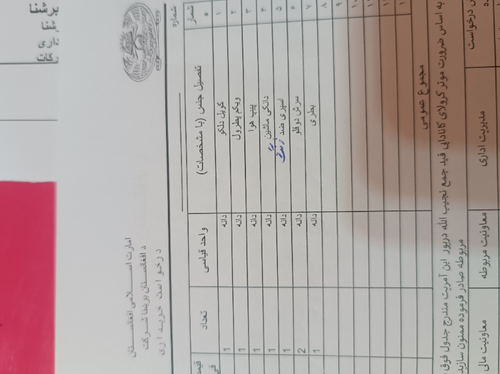 برشنا
شنا
داری
رکات
امارت اسلامی افغانستان
د افغانستان برېښنا شرکت
درخواست خریداری
شماره
شمار
تفصیل جنس (با مشخصات)
واحد قیاسی
تعداد
قیمت فی
۱ کویل پلکو دانه 1
۲ ویکم پطرول دانه 1
۳ پیپ هوا دانه 1
۴ دانگی ماشین دانه 1
۵ اسپری ضد زنگ دانه 1
۶ سرش دوقلو دانه 2
۷ بطری دانه 1
۸
۹
۱۰
۱۱
۱۲
۱۳
مجموع عمومی
به اساس ضرورت موتر کرولای کانادایی قید جمع نجیب الله دریور این آمریت مندرج جدول فوق
مربوطه صادر فرموده ممنون سازید
درخواست
مدیریت اداری
معاونیت مربوطه
معاونیت مالی